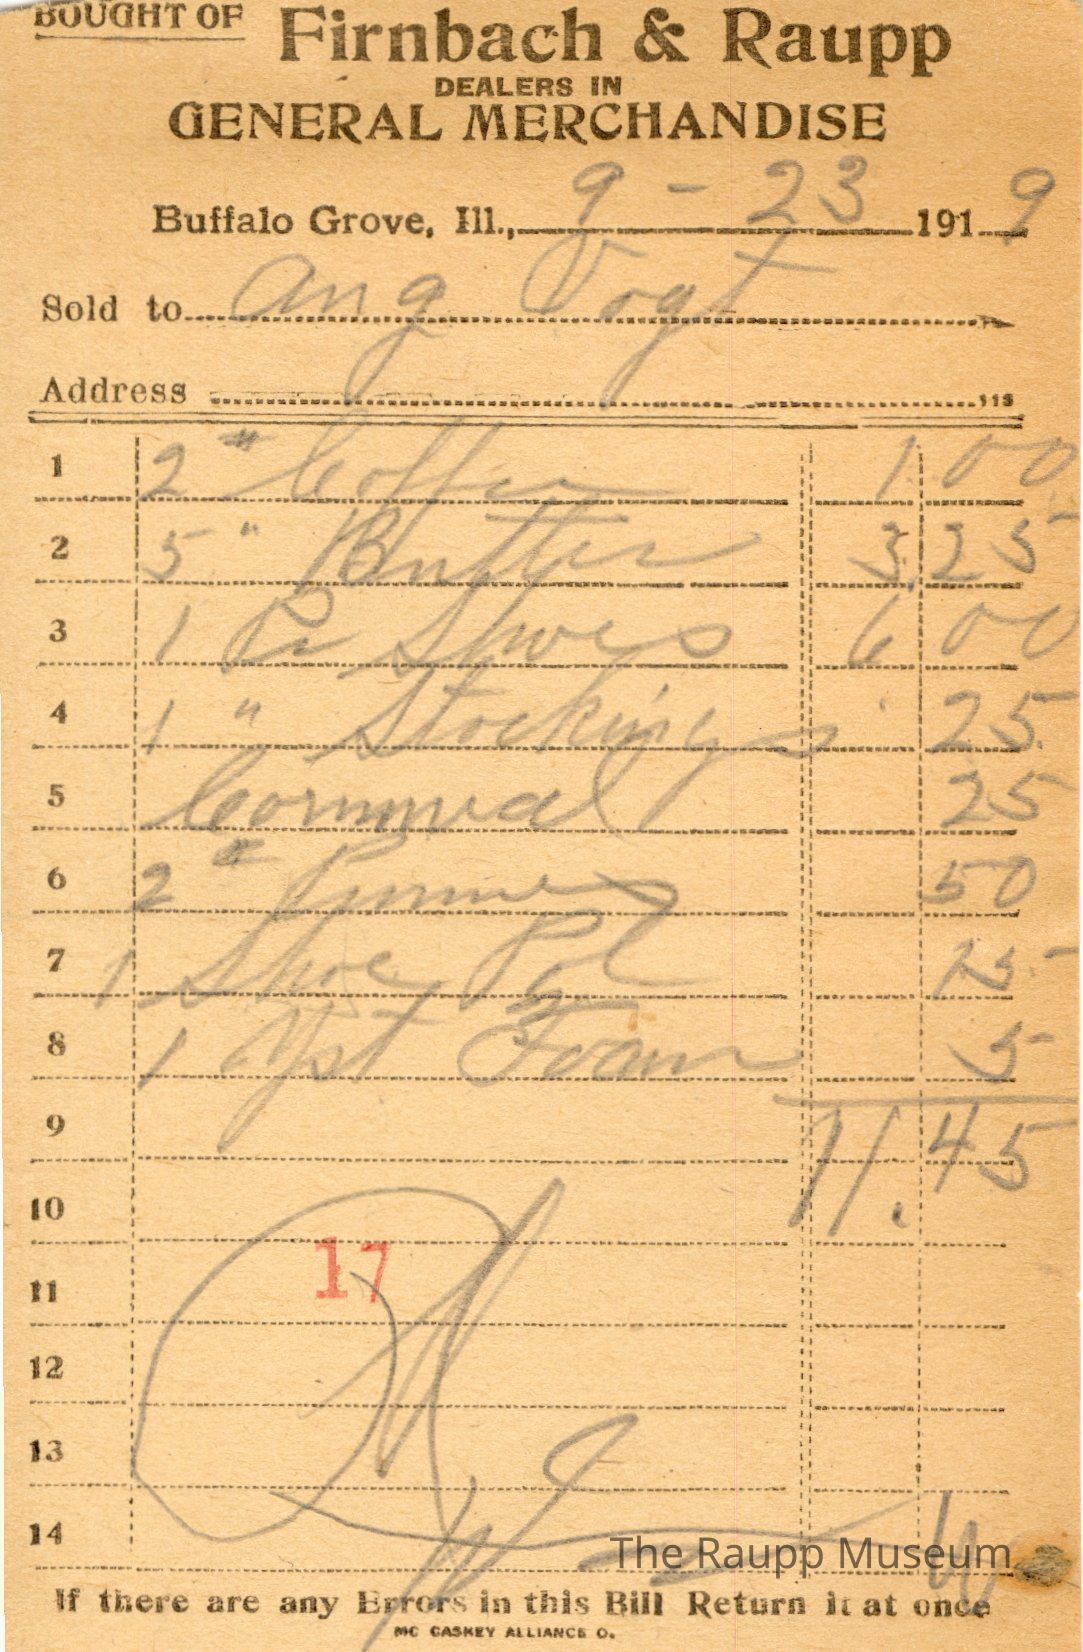 BOUGHT OF Firnbach & Raupp
DEALERS IN
GENERAL MERCHANDISE
Buffalo Grove, Ill., 9 - 23 1919
Sold to Aug Vogt
Address
113
1 2 # Coffee 1.00
2 5 " Butter 3.25
3 1 Pr Shoes 6 00
4 1 " Stockings 25
5 Cornmeal 25
6 2 # Prunes 50
7 1 Shoe Pol 15
8 1 Yst Foam 5
9 11.45
10
17
11
12
13
14
The Raupp Museum
If there are any Errors in this Bill Return it at once
MC CASKEY ALLIANCE O.